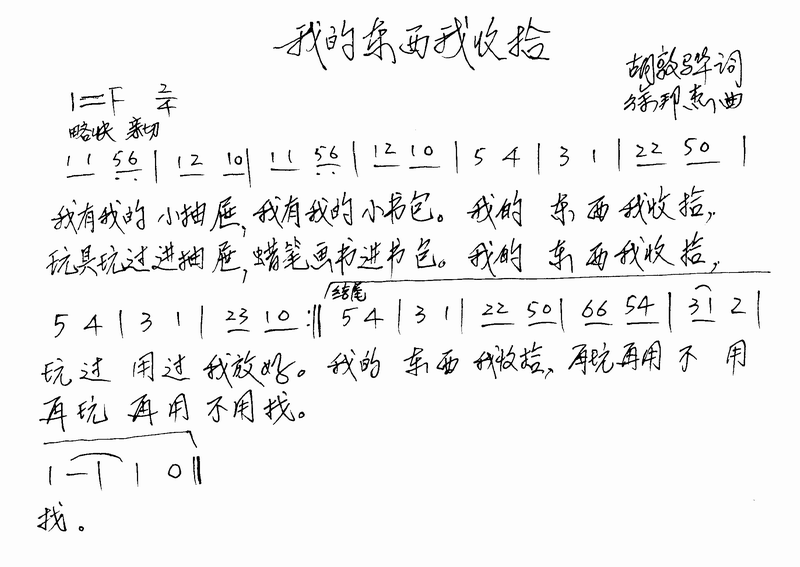 我的东西我收拾
胡敦骅词
1=F 2/4
徐邦杰曲
略快 亲切
1 1 5 6 | 1 2 1 0 | 1 1 5 6 | 1 2 1 0 | 5 4 | 3 1 | 2 2 5 0 |
我有我的小抽屉,我有我的小书包。我的 东西我收拾,
玩具玩过进抽屉,蜡笔画书进书包。我的 东西我收拾,
结尾
5 4 | 3 1 | 2 3 1 0 :‖ 5 4 | 3 1 | 2 2 5 0 | 6 6 5 4 | 3 1 2 |
玩过 用过 我放好。我的 东西 我收拾,再玩再用 不 用
再玩 再用 不用找。
1 — | 1 0 ‖
找。